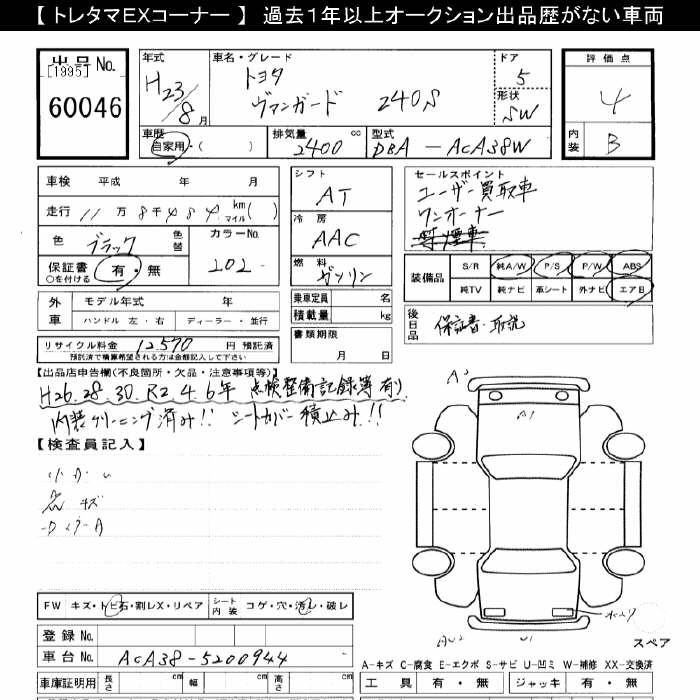 【 トレタマEXコーナー 】 過去1年以上オークション出品歴がない車両
出品 No.
[1995]
60046
年式
H23/8 月
車名・グレード
トヨタ
ヴァンガード 240S
ドア
5
形状
SW
評価点
4
内装
B
車歴
自家用・( )
排気量 cc
2400
型式
DBA - ACA38W
車検 平成 年 月
走行 11万8千484 km マイル( )
色 ブラック 色替
カラーNo.
202
保証書 有・無
○を付ける
外車
モデル年式 年
ハンドル 左・右 ディーラー・並行
リサイクル料金 12,590 円 預託済
預託済で積算希望される方は金額記入して下さい
シフト
AT
冷房
AAC
燃料
ガソリン
乗車定員 名
積載量 kg
書類期限
月 日
セールスポイント
ユーザー買取車
ワンオーナー
装備品
S/R 純A/W P/S P/W ABS
純TV 純ナビ 革シート 外ナビ エアB
後日品
保証書・取説
【出品店申告欄(不良箇所・欠品・注意事項等)】
H26.28.30.R2.4.6年 点検整備記録簿有り
内装クリーニング済み!! シートカバー積込み!!
【検査員記入】
小キズ
FW キズ・トビ石・割レX・リペア シート内装 コゲ・穴・汚レ・破レ
登録 No.
車台 No. ACA38-5200944
車庫証明用 長さ cm 幅 cm 高さ cm
A1
スペア
A-キズ C-腐食 E-エクボ S-サビ U-凹ミ W-補修 XX-交換済
工具 有・無 ジャッキ 有・無